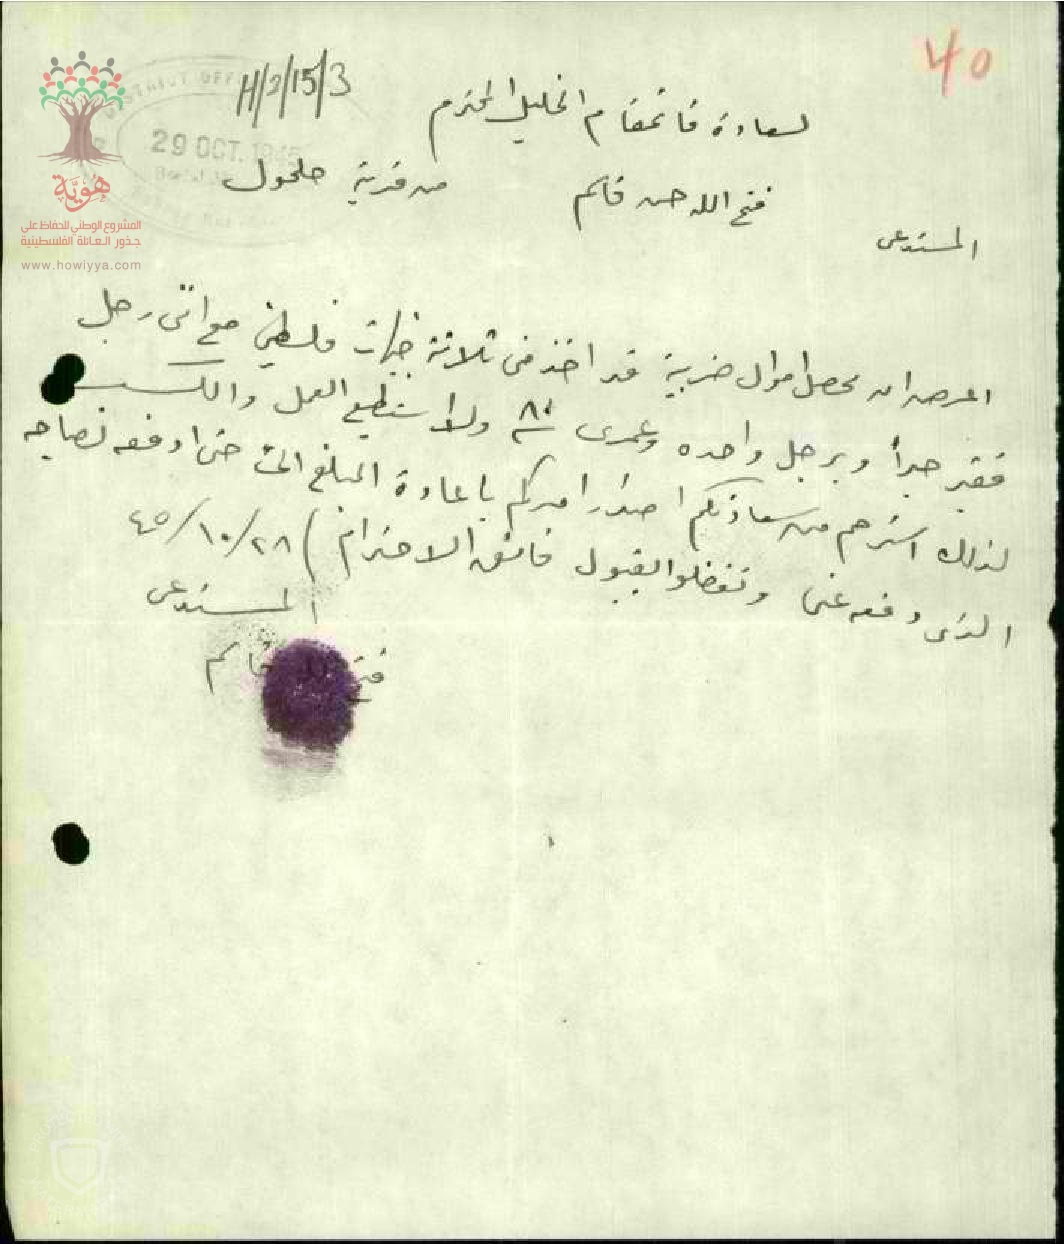 40
H/2/15/3
DISTRICT OFF
29 OCT. 1945
هوية
المشروع الوطني للحفاظ على
جذور العائلة الفلسطينية
www.howiyya.com
لسعادة قائمقام الخليل المحترم
المستدعي فتح الله حسن قاسم من قرية حلحول
اعرض ان محصل اموال ضريبة قد اخذ مني ثلاثة جنيهات فلسطيني مع انني رجل
فقير جداً وبرجل واحده وعمري ٨٠ سنه ولا استطيع العمل والكسب
لذلك استرحم من سعادتكم اصدار امركم باعادة المبلغ الي حتى ادفعه لصاحبه
الذي دفعه عني وتفضلوا بقبول فائق الاحترام ٢٨/١٠/٤٥
المستدعي
فتح الله قاسم